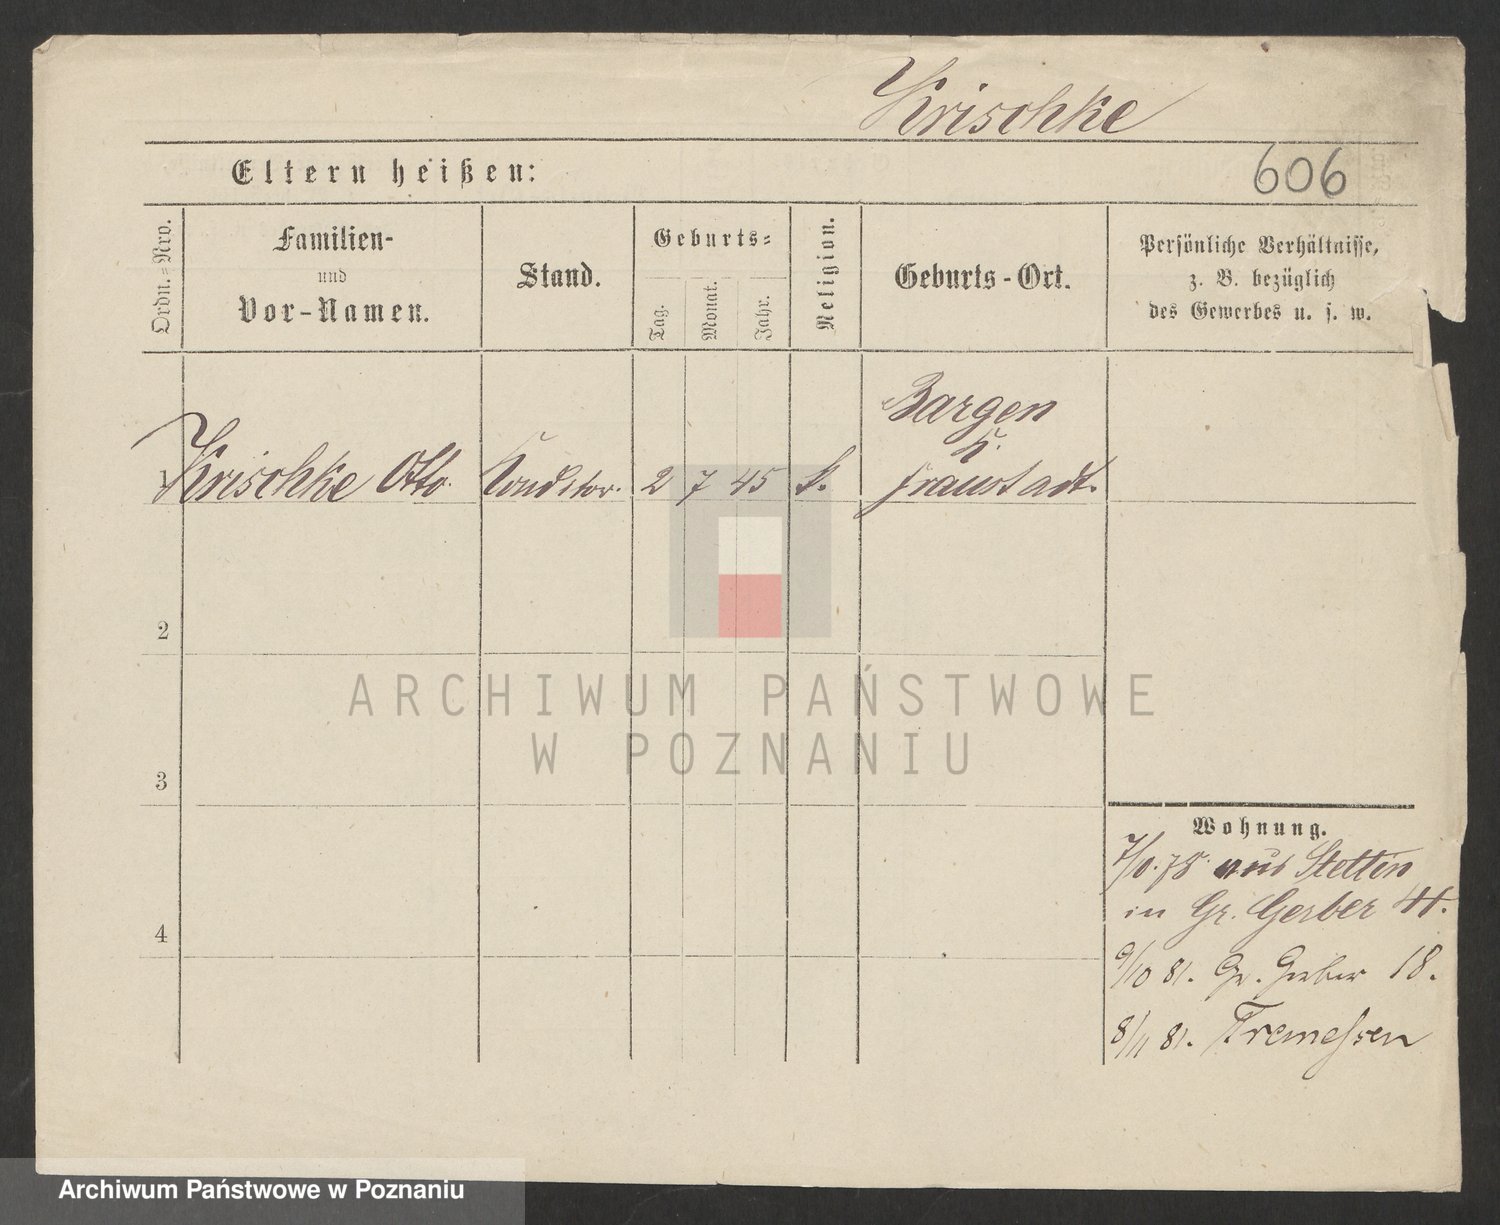 Krischke
Eltern heißen:
606
Ordn.-Nro.
Familien-
und
Vor-Namen.
Stand.
Geburts-
Tag.
Monat.
Jahr.
Religion.
Geburts-Ort.
Persönliche Verhältnisse,
z. B. bezüglich
des Gewerbes u. s. w.
Bargen
K.
1 Krischke Otto. Konditor. 2 7 45 k. Fraustadt.
2
3
4
Wohnung.
aus Stettin
in Gr. Gerber 41.
9/10 81. Gr. Gerber 18.
8/11 81. Tremessen
ARCHIWUM PAŃSTWOWE
W POZNANIU
Archiwum Państwowe w Poznaniu